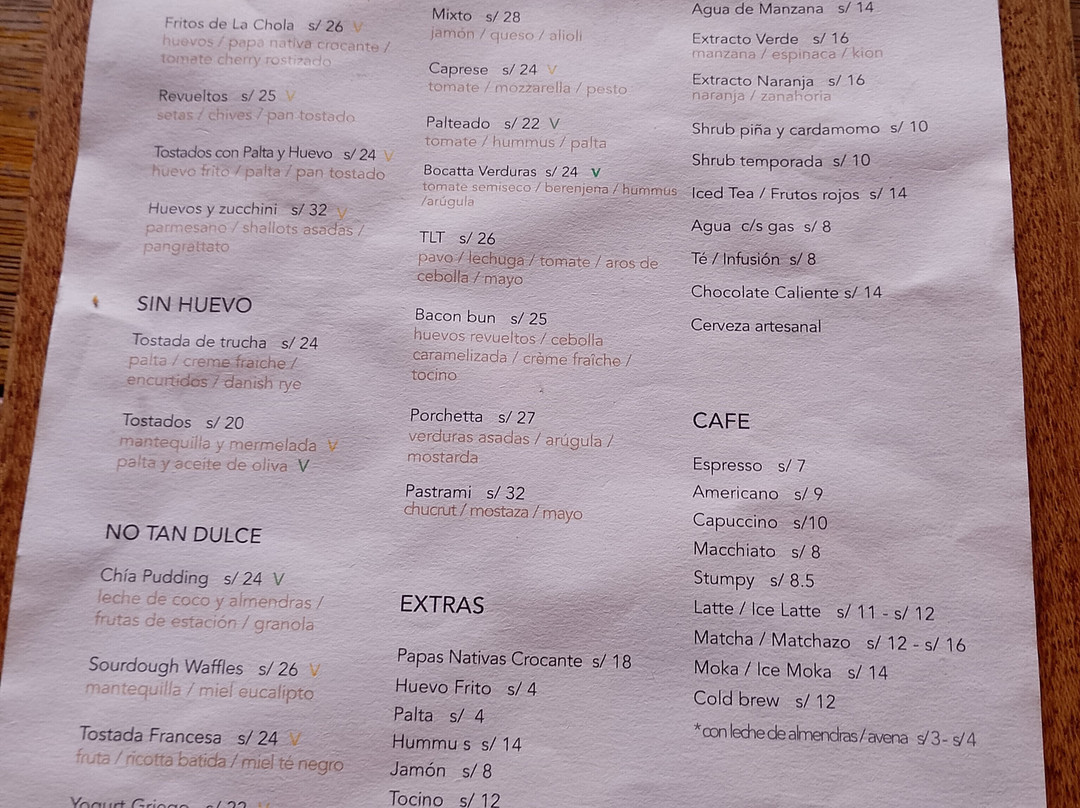 Fritos de La Chola s/ 26 V
huevos / papa nativa crocante /
tomate cherry rostizado
Revueltos s/ 25 V
setas / chives / pan tostado
Tostados con Palta y Huevo s/ 24 V
huevo frito / palta / pan tostado
Huevos y zucchini s/ 32 V
parmesano / shallots asadas /
pangrattato
SIN HUEVO
Tostada de trucha s/ 24
palta / creme fraiche /
encurtidos / danish rye
Tostados s/ 20
mantequilla y mermelada V
palta y aceite de oliva V
NO TAN DULCE
Chía Pudding s/ 24 V
leche de coco y almendras /
frutas de estación / granola
Sourdough Waffles s/ 26 V
mantequilla / miel eucalipto
Tostada Francesa s/ 24 V
fruta / ricotta batida / miel té negro
Yogurt Griego s/ 22 V
Mixto s/ 28
jamón / queso / alioli
Caprese s/ 24 V
tomate / mozzarella / pesto
Palteado s/ 22 V
tomate / hummus / palta
Bocatta Verduras s/ 24 V
tomate semiseco / berenjena / hummus
/arúgula
TLT s/ 26
pavo / lechuga / tomate / aros de
cebolla / mayo
Bacon bun s/ 25
huevos revueltos / cebolla
caramelizada / crème fraîche /
tocino
Porchetta s/ 27
verduras asadas / arúgula /
mostarda
Pastrami s/ 32
chucrut / mostaza / mayo
EXTRAS
Papas Nativas Crocante s/ 18
Huevo Frito s/ 4
Palta s/ 4
Hummu s s/ 14
Jamón s/ 8
Tocino s/ 12
Agua de Manzana s/ 14
Extracto Verde s/ 16
manzana / espinaca / kion
Extracto Naranja s/ 16
naranja / zanahoria
Shrub piña y cardamomo s/ 10
Shrub temporada s/ 10
Iced Tea / Frutos rojos s/ 14
Agua c/s gas s/ 8
Té / Infusión s/ 8
Chocolate Caliente s/ 14
Cerveza artesanal
CAFE
Espresso s/ 7
Americano s/ 9
Capuccino s/10
Macchiato s/ 8
Stumpy s/ 8.5
Latte / Ice Latte s/ 11 - s/ 12
Matcha / Matchazo s/ 12 - s/ 16
Moka / Ice Moka s/ 14
Cold brew s/ 12
*con leche de almendras / avena s/ 3 - s/ 4